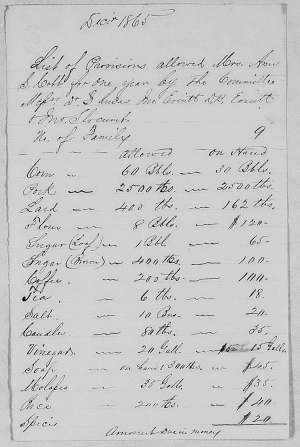 Decr 1865
List of Provisions allowed Mrs. Ann
S. Cobb for one year by the Committee
Dr. S. Lucas Jno. Everitt Everitt
& Jno. Slocumb
No. of Family 9
allowed on Hand
Corn 60 Bbls. 30 Bbls.
Pork 2500 lbs. 2500 lbs.
Lard 400 lbs 162 lbs.
Flour 8 Bbls. $120.
Sugar (Loaf) 1 Bbl 65.
Sugar (Brown) 400 lbs. 100.
Coffee 200 lbs 100.
Tea 6 lbs. 18.
Salt 10 20.
Candles 50 lbs. 35.
Vinegar 20 Gall. 15 Galls.
Soap on hand 300 lbs. $45.
Molasses 35 Galls $35.
Rice 200 lbs. $40
Spices $20
Amount Due in money